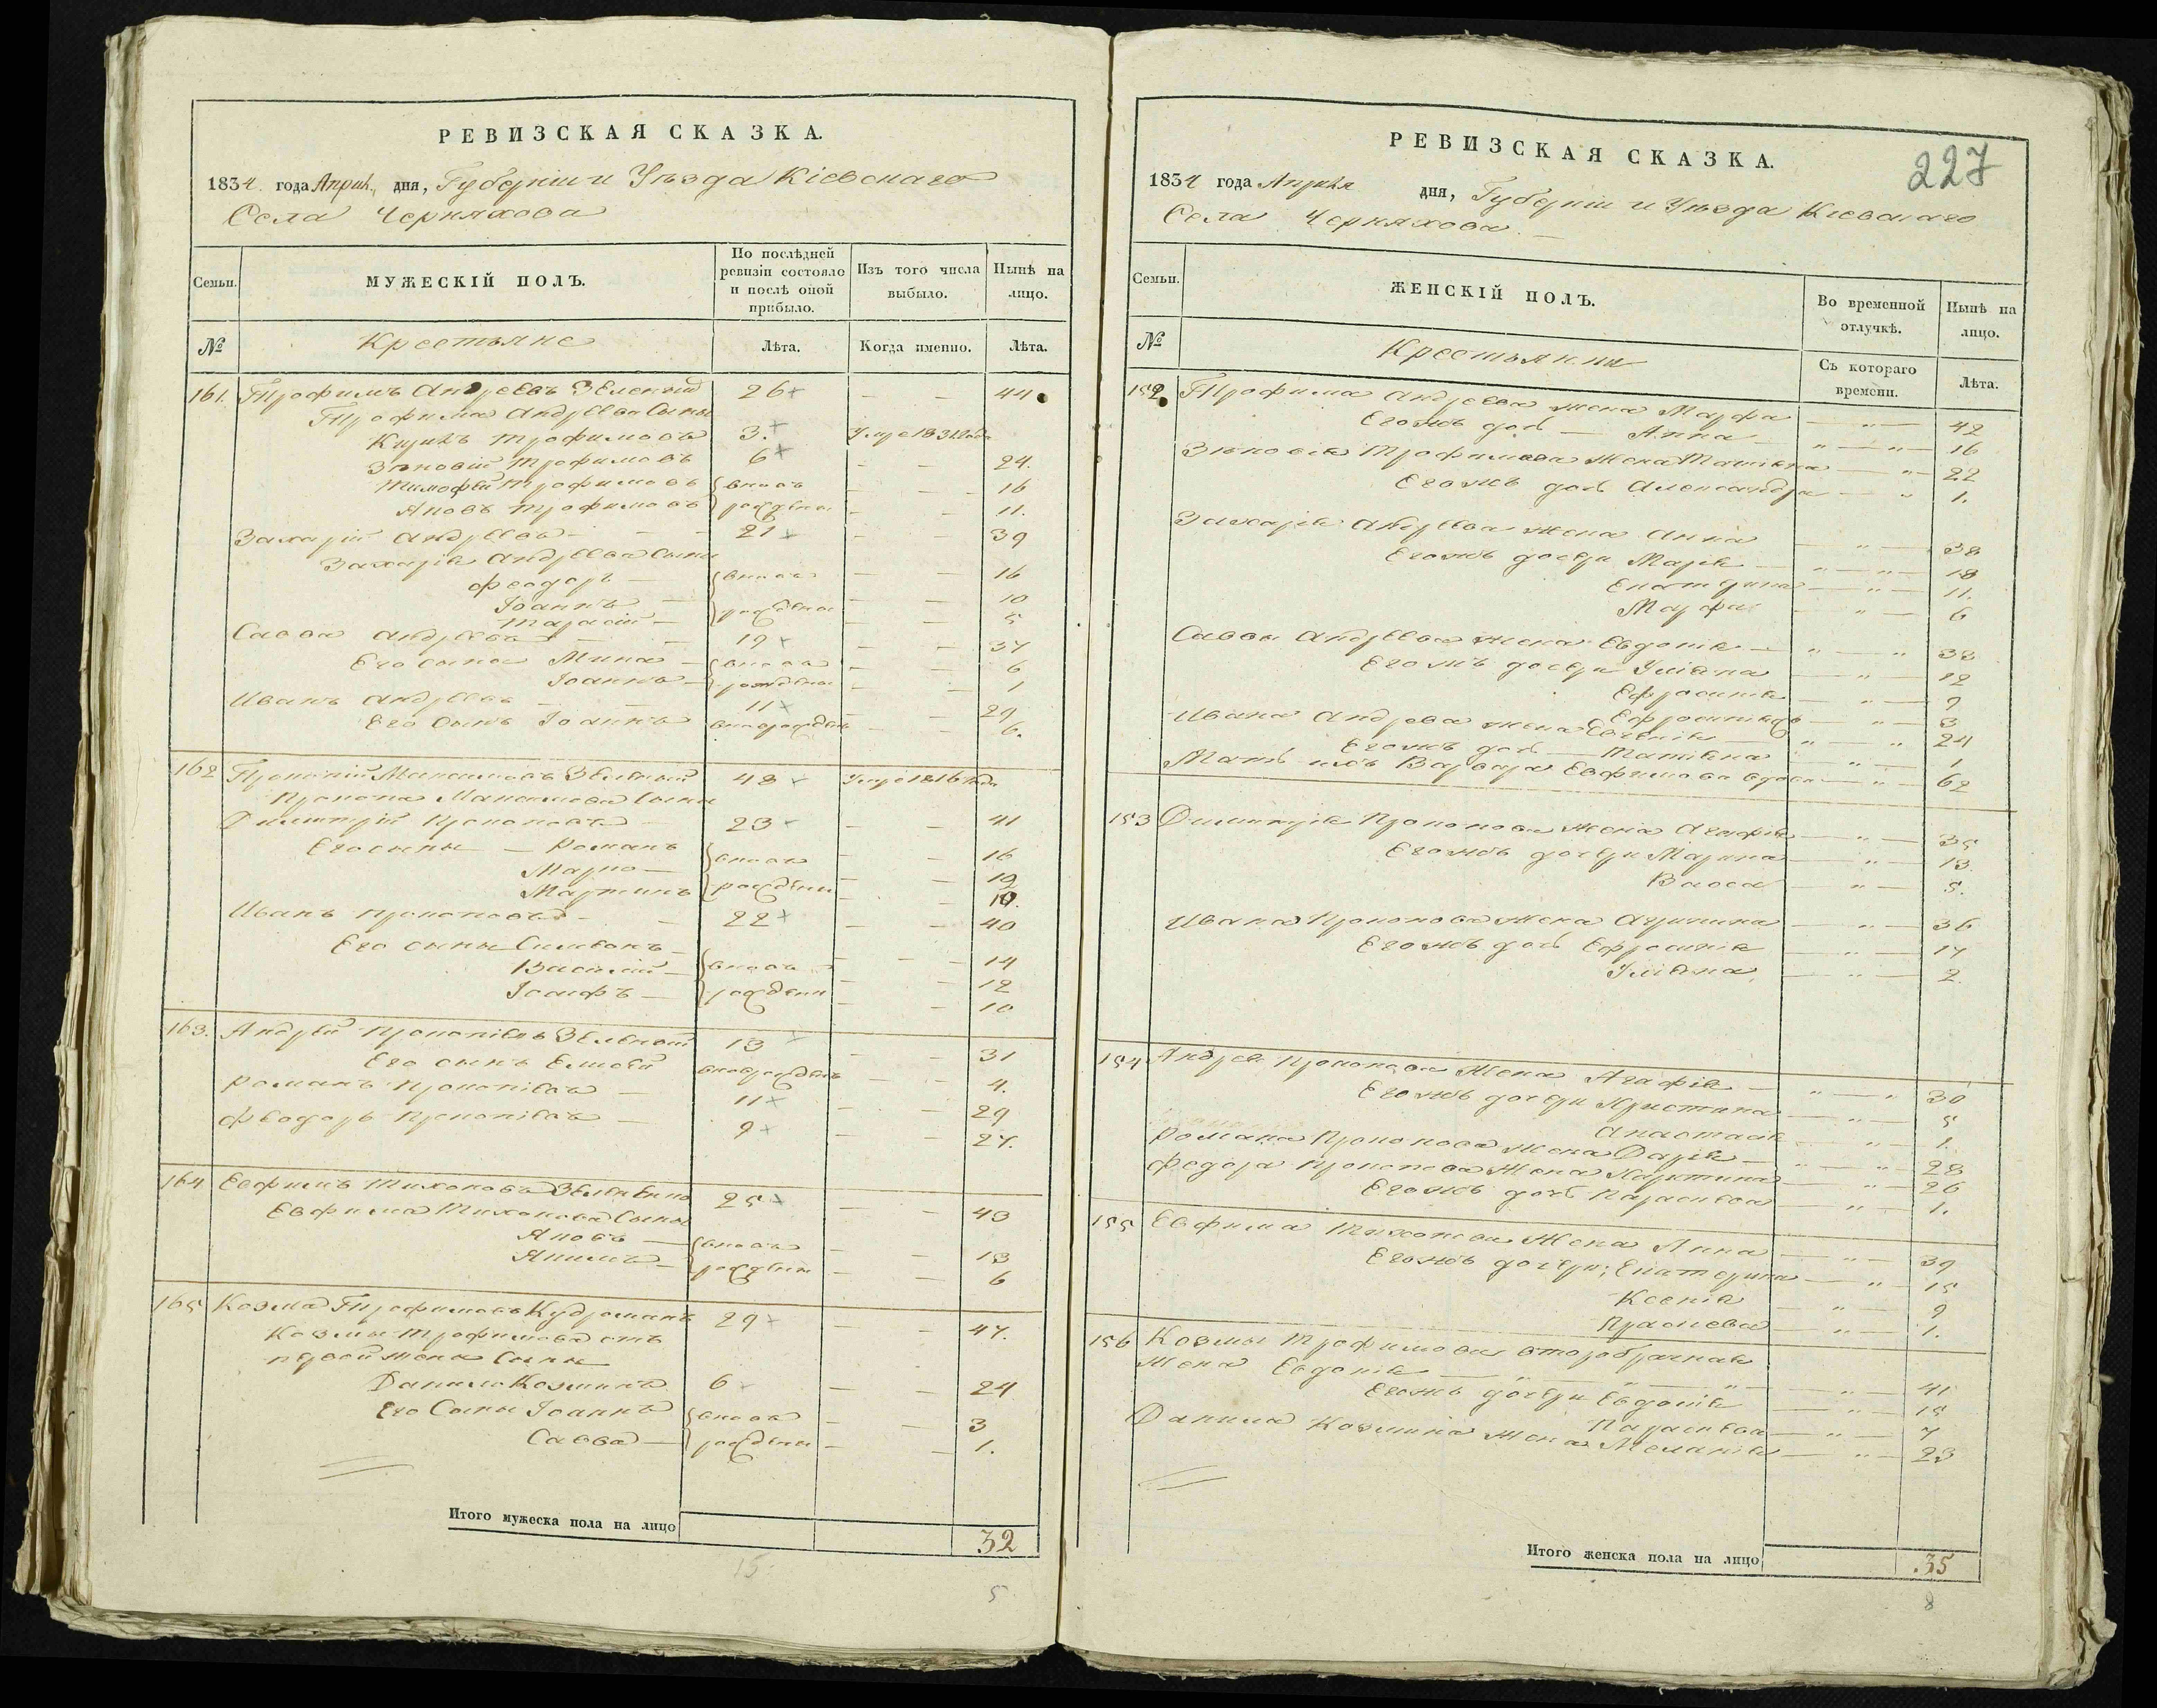 РЕВИЗСКАЯ СКАЗКА.
1834 года Април. дня, Губерніи и Уѣзда Кіевскаго
Села Черняхова
Семьи. МУЖЕСКІЙ ПОЛЪ. По послѣдней ревизіи состояло и послѣ оной прибыло. Изъ того числа выбыло. Нынѣ на лицо.
№ Крестьяне Лѣта. Когда именно. Лѣта.
161. Трофимъ Андреевъ Зеленый 26 — — 44
Трофима Андреева Сыны
Трофимовъ 3. Умре 1832 года
Зѣновій Трофимовъ 6 — — 24.
Тимофей Трофимовъ вновь — — 16
Яковъ Трофимовъ рождены — — 11.
Захарій Андреевъ — — 21 — — 39
Захарія Андреева Сыны
Феодоръ — вновь — — 16
Іоаннъ — рождены — — 10
Тарасій — — — 5
Савва Андреевъ — — 19 — — 37
Его сыны Мина — вновь — — 6
Іоаннъ — рождены — — 1
Иванъ Андреевъ — — 11 — — 29
Его Сынъ Іоаннъ вноврожденъ — — 6.
162 Прокопій Максимовъ Зеленый 48 Умре 1816 года
Прокопа Максимова Сыны
Димитрій Прокоповъ — 23 — — 41
Его сыны — Романъ вновь — — 16
Марко — — — 12
Мартинъ рождены — — 10.
Иванъ Прокоповъ — — 22 — — 40
Его сыны Симеонъ — — — 14
Василій — вновь — — 12
Іосифъ — рождены — — 10
163. Андрей Прокопіевъ Зеленый 13 — — 31
Его сынъ Елисей вноврожденъ — — 4.
Романъ Прокопіевъ — 11 — — 29
Феодоръ Прокопіевъ — 9 — — 27.
164 Евфимъ Тихоновъ 25 — — 43
Евфима Тихонова Сыны
Яковъ — вновь — — 13
Якимъ — рождены — — 6
165 Козма Трофимовъ 29 — — 47.
Козмы Трофимова отъ
первой жены Сыны
Данило Козминъ 6 — — 24
Его Сыны Іоаннъ вновь — — 3
Савва — рождены — — 1.
Итого мужеска пола на лицо 32
15.
5
227
РЕВИЗСКАЯ СКАЗКА.
1834 года Апрѣля дня, Губерніи и Уѣзда Кіевскаго
Села Черняхова. —
Семьи. ЖЕНСКІЙ ПОЛЪ. Во временной отлучкѣ. Нынѣ на лицо.
№ Крестьянки Съ котораго времени. Лѣта.
152. Трофима Андреева жена Марфа — „ — 42
Егожъ дочь — Анна — „ — „ — 16
Зѣновія Трофимова жена Татіяна — „ — 22
Егожъ дочь Александра — „ 1.
Захарія Андреева жена Анна — „ — 38
Егожъ дочери Марія — „ — „ — 18
Екатерина — „ — 11.
Марфа — „ — 6
Саввы Андреева жена Евдокія — „ — „ 33
Егожъ дочери Уліяна — „ — 12
Ефросинія — „ — 9
— „ — 3
Ивана Андреева жена Евгенія — „ — „ 24
Егожъ дочь — Татіяна „ — 1
Мать ихъ Варвара Евфимова вдова — „ — 62
153 Димитрія Прокопова жена Агафія — „ — 35
Егожъ дочери Марина — „ — 13.
Васса — „ — 5.
Ивана Прокопова жена Агрипина — „ — 36
Егожъ дочь Ефросинія — „ — 17
Уліяна — „ — 2.
154 Андрея Прокопова жена Агафія — „ — „ 30
Егожъ дочери Христина — „ — 5
Анастасія — „ — 1.
Романа Прокопова жена Дарія — „ — „ — 28
Федора Прокопова жена — „ — 26
Егожъ дочь Параскева — „ — 1.
155 Евфима Тихонова жена Анна — „ — 39
Егожъ дочери: Екатерина — „ — 15
Ксенія — „ — 9
— „ — 1.
156 Козмы Трофимова второбрачная
жена Евдокія — „ — „ — „ — 41
Егожъ дочери Евдокія — „ — 15
Параскева — „ — 7
Данила Козмина жена Меланія — „ — 23
Итого женска пола на лицо .35
8